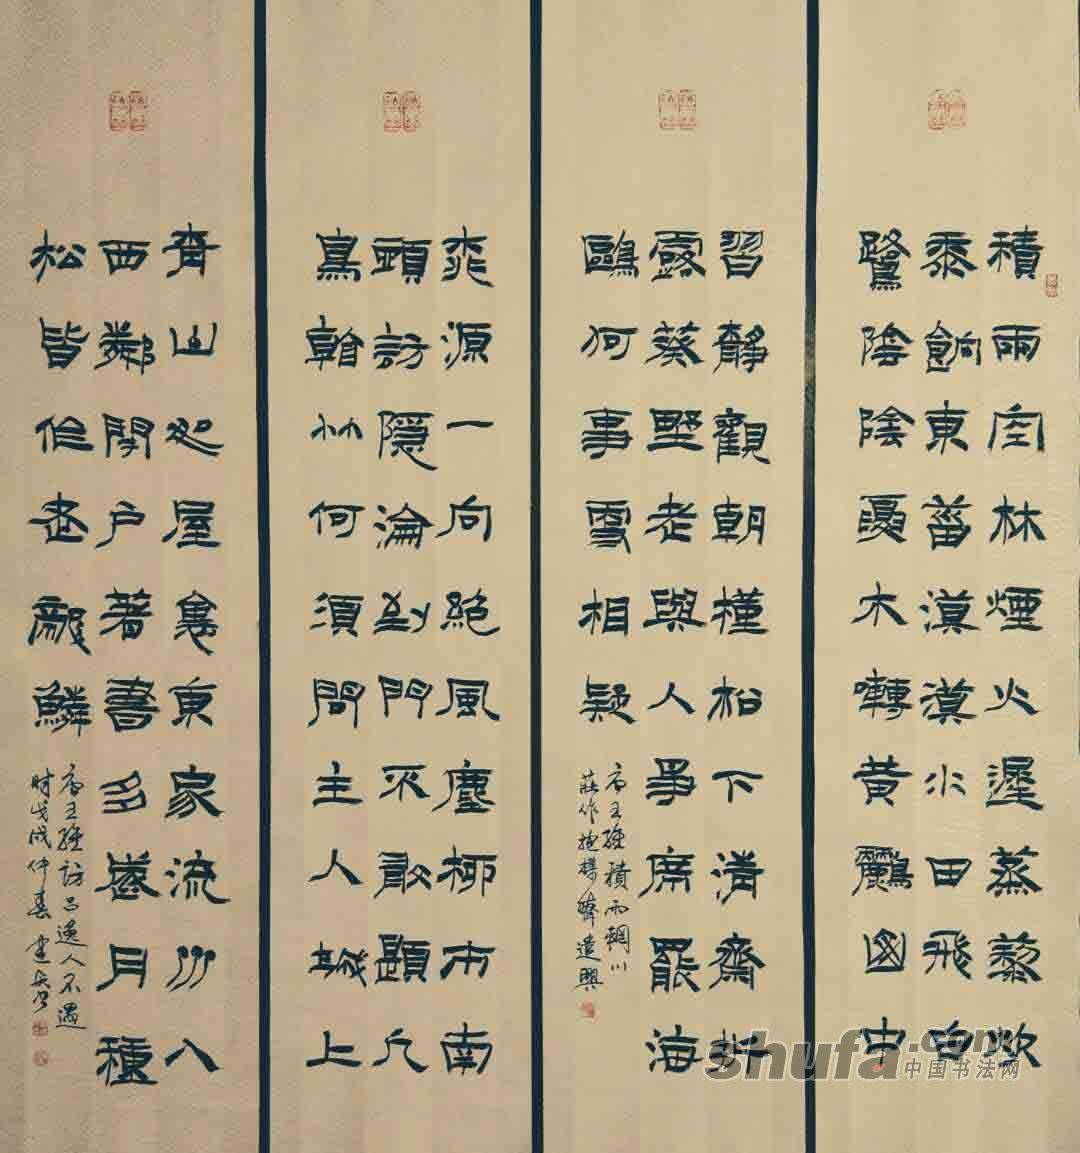 積雨空林煙火遲蒸藜炊
黍餉東菑漠漠水田飛白
鷺陰陰夏木囀黃鸝山中
習靜觀朝槿松下清齋折
露葵野老與人爭席罷海
鷗何事更相疑
唐王維積雨輞川
莊作遣興
桃源一向絕風塵柳市南
頭訪隱淪到門不敢題凡
鳥看竹何須問主人城上
青山如屋裏東家流水入
西鄰閉戶著書多歲月種
松皆作老龍鱗
唐王維訪呂逸人不遇
時戊戌仲春
shufa.com
中国书法网